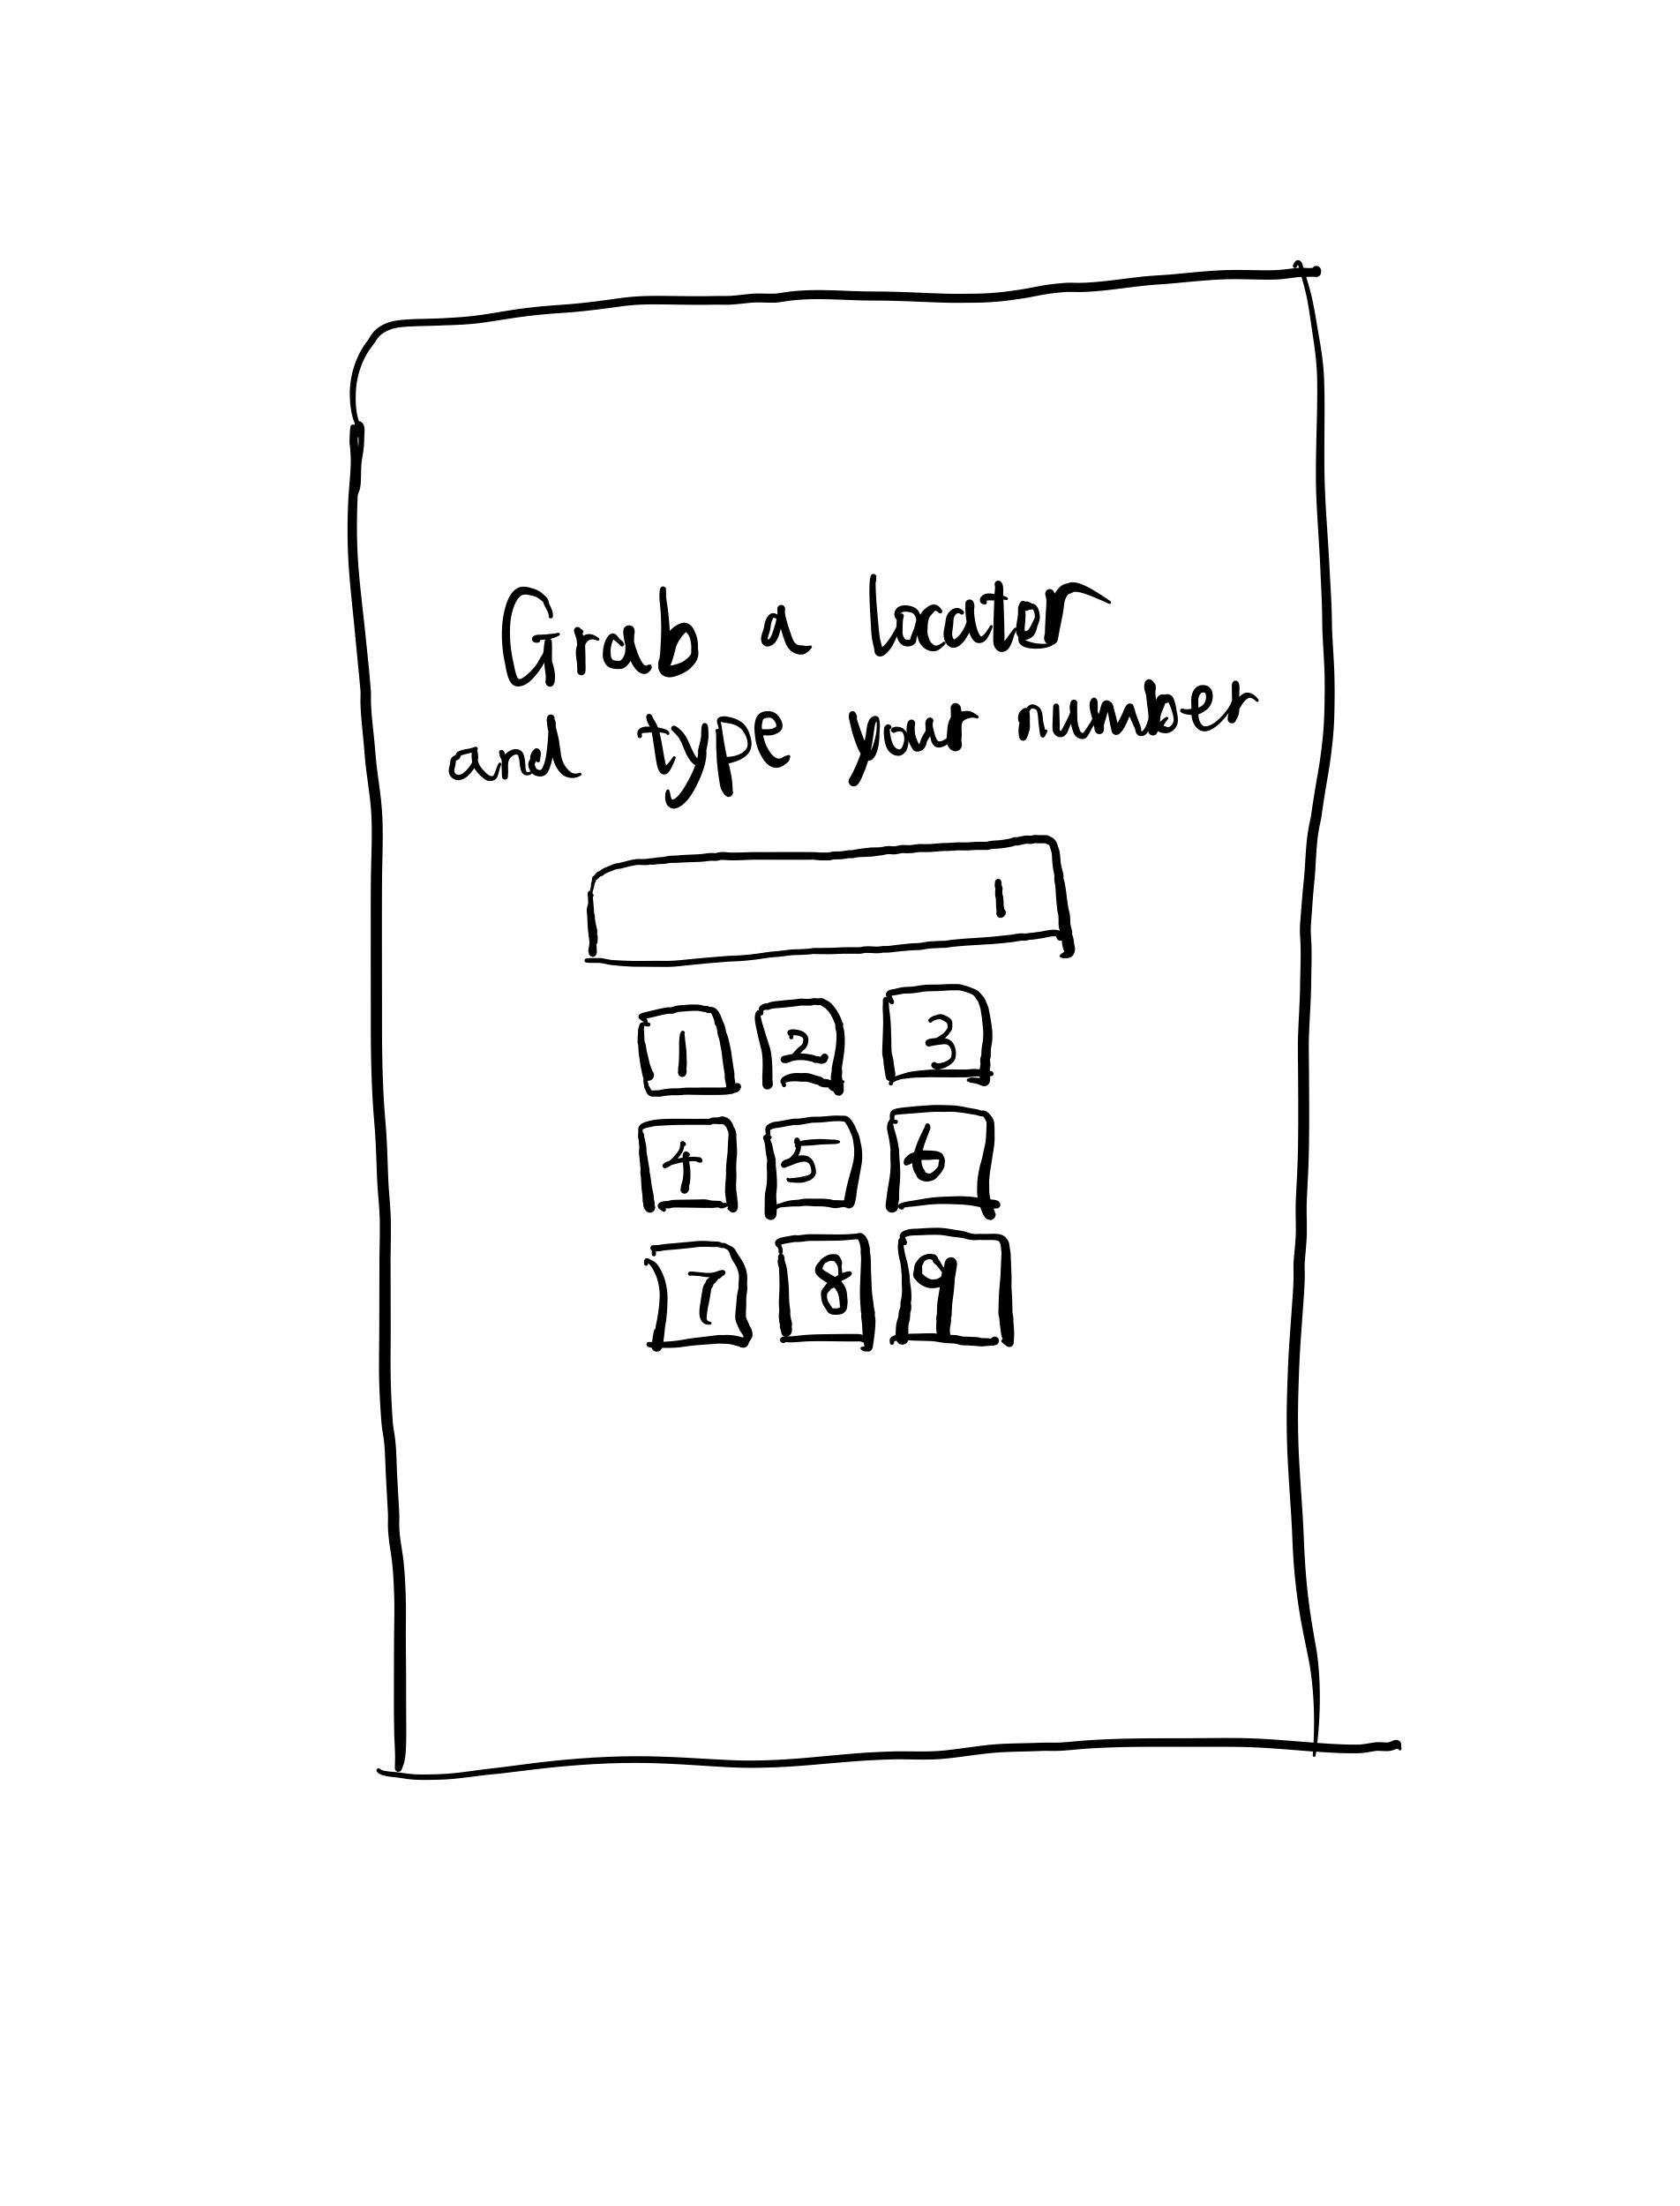 Grab a locator
and type your number
1
1 2 3
4 5 6
7 8 9